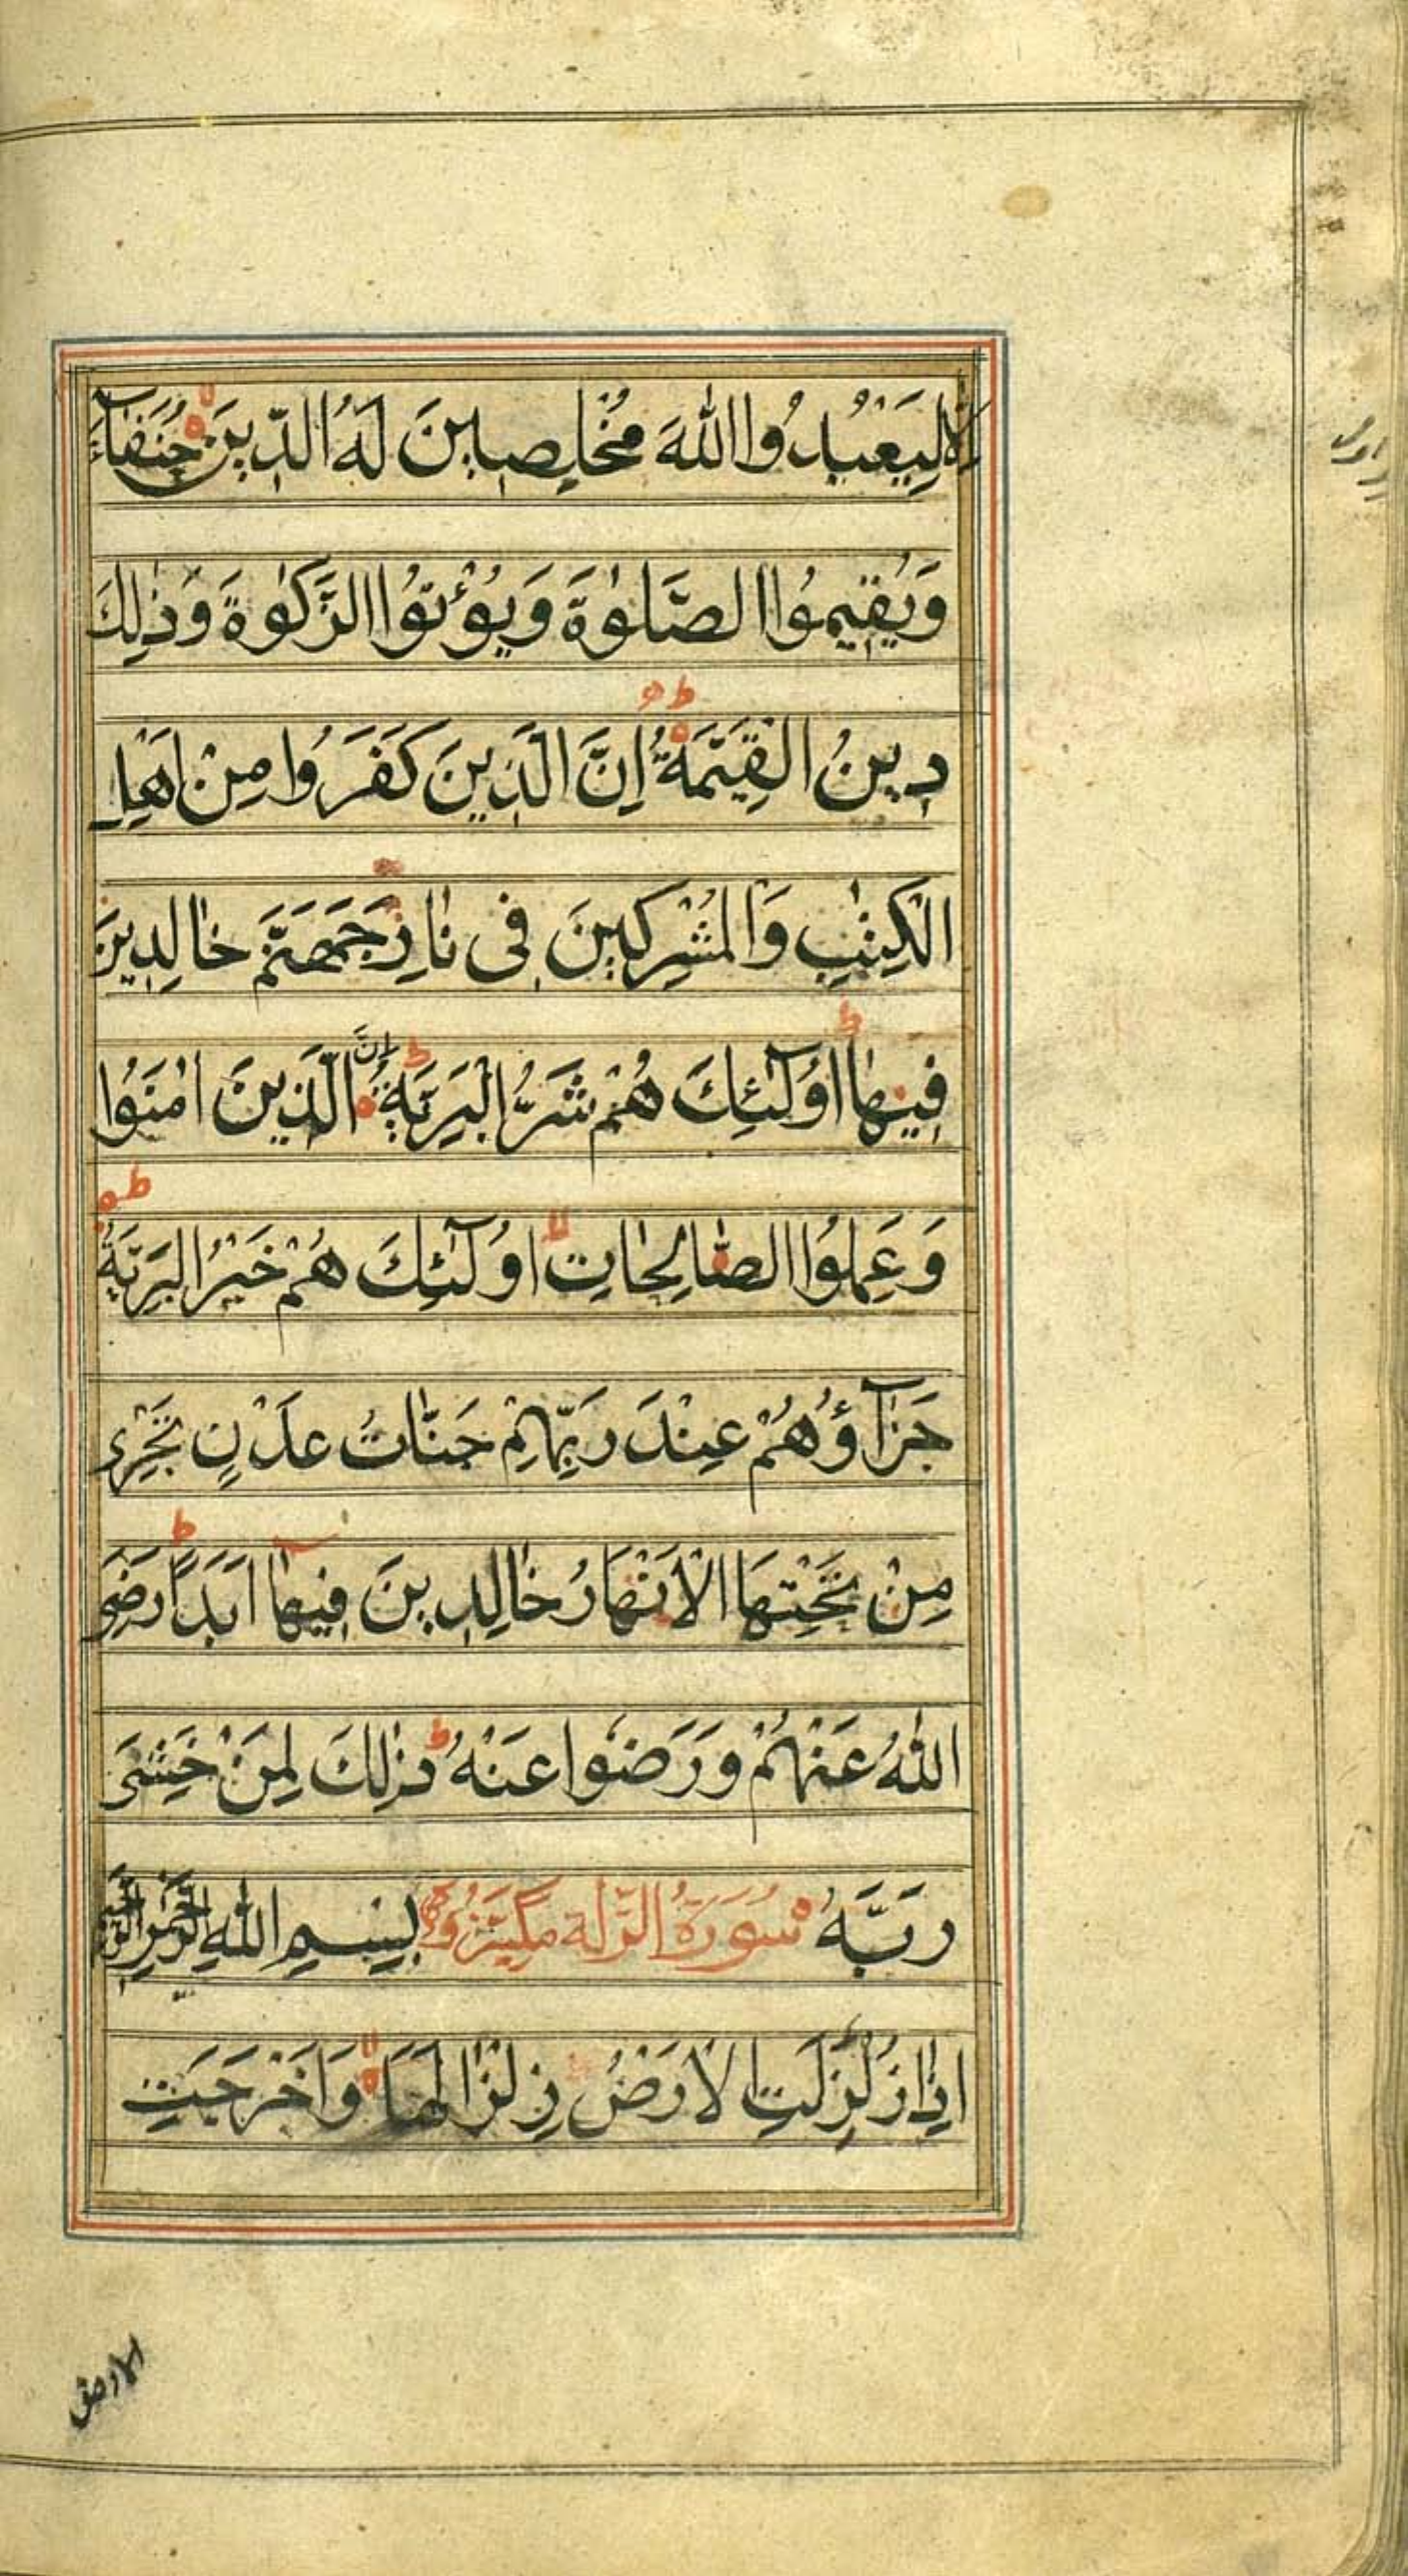 اِلَّا لِيَعْبُدُوا اللّٰهَ مُخْلِصِينَ لَهُ الدِّينَ حُنَفَآءَ
وَيُقِيمُوا الصَّلٰوةَ وَيُؤْتُوا الزَّكٰوةَ وَذٰلِكَ
دِينُ الْقَيِّمَةِ ط اِنَّ الَّذِينَ كَفَرُوا مِنْ اَهْلِ
الْكِتٰبِ وَالْمُشْرِكِينَ فِى نَارِ جَهَنَّمَ خَالِدِينَ
فِيهَا ط اُولٰٓئِكَ هُمْ شَرُّ الْبَرِيَّةِ ط اِنَّ الَّذِينَ اٰمَنُوا
وَعَمِلُوا الصَّالِحَاتِ لا اُولٰٓئِكَ هُمْ خَيْرُ الْبَرِيَّةِ ط
جَزَآؤُهُمْ عِنْدَ رَبِّهِمْ جَنَّاتُ عَدْنٍ تَجْرِى
مِنْ تَحْتِهَا الْاَنْهَارُ خَالِدِينَ فِيهَا اَبَدًا ط رَضِىَ
اللّٰهُ عَنْهُمْ وَرَضُوا عَنْهُ ط ذٰلِكَ لِمَنْ خَشِىَ
رَبَّهُ سُورَةُ الزلة مكية بِسْمِ اللّٰهِ الرَّحْمٰنِ الرَّحِيمِ
اِذَا زُلْزِلَتِ الْاَرْضُ زِلْزَالَهَا لا وَاَخْرَجَتِ
الارض